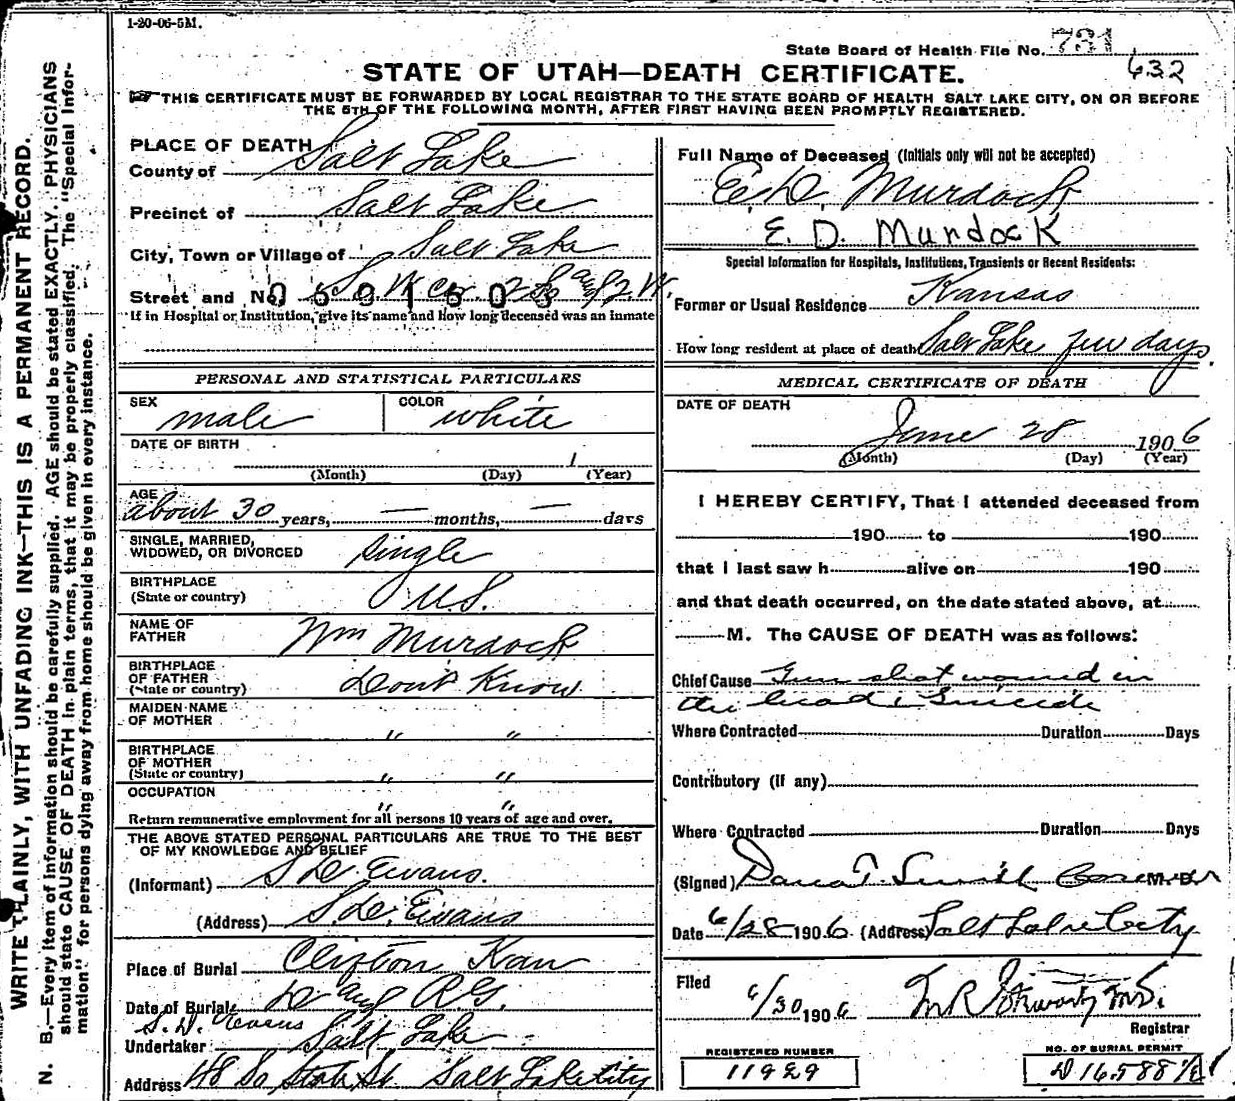 1-20-06-5M.
State Board of Health File No. 731
632
STATE OF UTAH—DEATH CERTIFICATE.
THIS CERTIFICATE MUST BE FORWARDED BY LOCAL REGISTRAR TO THE STATE BOARD OF HEALTH SALT LAKE CITY, ON OR BEFORE
THE 5TH OF THE FOLLOWING MONTH, AFTER FIRST HAVING BEEN PROMPTLY REGISTERED.
WRITE PLAINLY, WITH UNFADING INK—THIS IS A PERMANENT RECORD.
N. B.—Every item of information should be carefully supplied. AGE should be stated EXACTLY. PHYSICIANS
should state CAUSE OF DEATH in plain terms, that it may be properly classified. The "Special Infor-
mation" for persons dying away from home should be given in every instance.
PLACE OF DEATH
County of Salt Lake
Precinct of Salt Lake
City, Town or Village of Salt Lake
Street and No. S W cor 2 So and 2 W.
0601603
If in Hospital or Institution, give its name and how long deceased was an inmate
PERSONAL AND STATISTICAL PARTICULARS
SEX male COLOR white
DATE OF BIRTH
(Month) (Day) 1 (Year)
AGE
about 30 years, — months, — days
SINGLE, MARRIED,
WIDOWED, OR DIVORCED single
BIRTHPLACE
(State or country) U.S.
NAME OF
FATHER Wm Murdock
BIRTHPLACE
OF FATHER
(State or country) Dont Know
MAIDEN NAME
OF MOTHER " "
BIRTHPLACE
OF MOTHER
(State or country) " "
OCCUPATION
" "
Return remunerative employment for all persons 10 years of age and over.
THE ABOVE STATED PERSONAL PARTICULARS ARE TRUE TO THE BEST
OF MY KNOWLEDGE AND BELIEF
(Informant) S D Evans.
(Address) S. D. Evans
Place of Burial Clifton, Kan
Date of Burial D and R G.
S. D. Evans
Undertaker Salt Lake
Address 48 So State St. Salt Lake City
Full Name of Deceased (Initials only will not be accepted)
E. D. Murdock
E. D. Murdock
Special Information for Hospitals, Institutions, Transients or Recent Residents:
Former or Usual Residence Kansas
How long resident at place of death Salt Lake few days.
MEDICAL CERTIFICATE OF DEATH
DATE OF DEATH
June 28 1906
(Month) (Day) (Year)
I HEREBY CERTIFY, That I attended deceased from
190 to 190
that I last saw h alive on 190
and that death occurred, on the date stated above, at
M. The CAUSE OF DEATH was as follows:
Chief Cause Gun shot wound in
the head Suicide
Where Contracted Duration Days
Contributory (if any)
Where Contracted Duration Days
(Signed) Dana T. Smith Coroner M.D.
Date 6/28 1906 (Address) Salt Lake City
Filed
6/30 1906 M.D.
Registrar
REGISTERED NUMBER
11929
NO. OF BURIAL PERMIT
D 16588 1/2